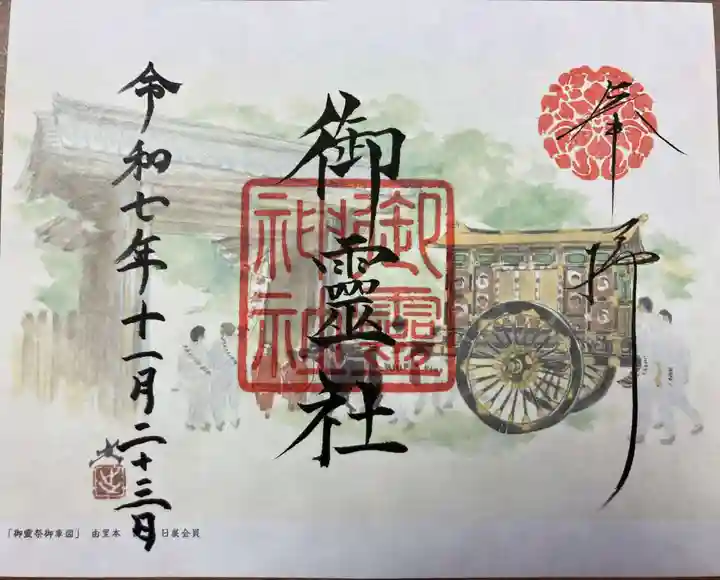 奉拝
御靈社
令和七年十一月二十三日
「御霊祭御車図」 由里本 日展会員